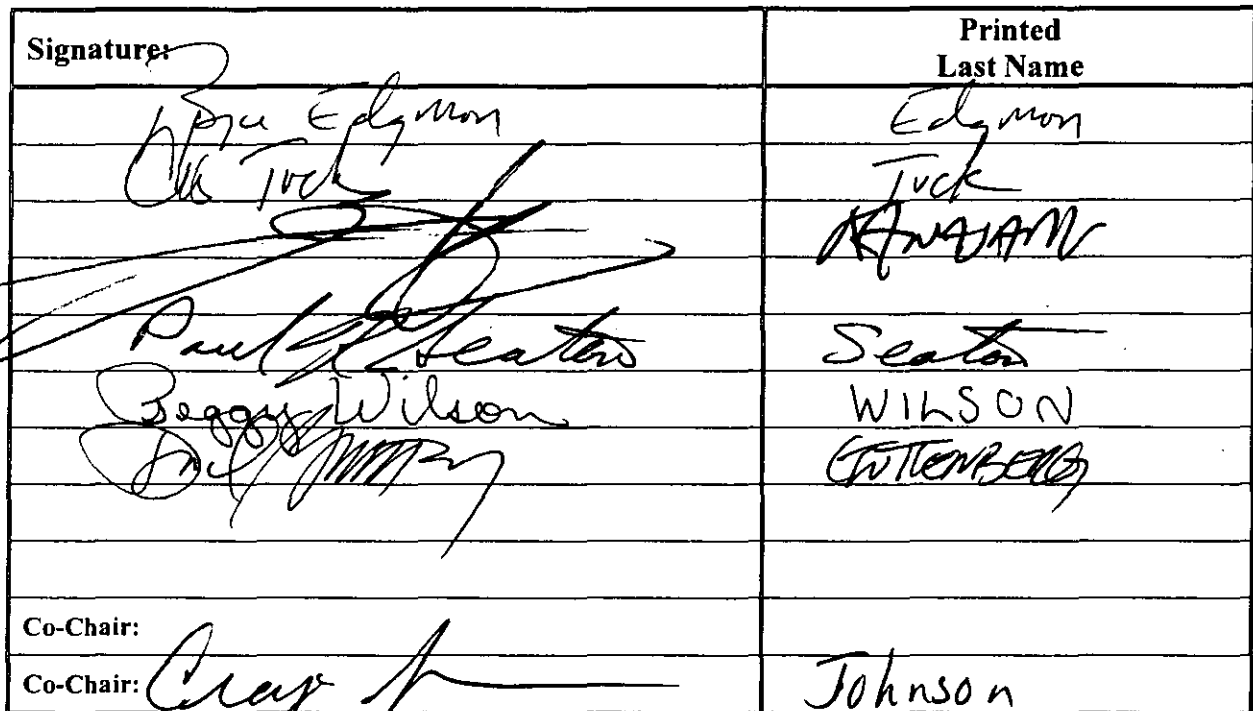 Signature: Printed
Last Name
Bryce Edgmon Edgmon
Chris Tuck Tuck
Paul Seaton Seaton
Peggy Wilson WILSON
GUTTENBERG
Co-Chair:
Co-Chair: Craig Johnson